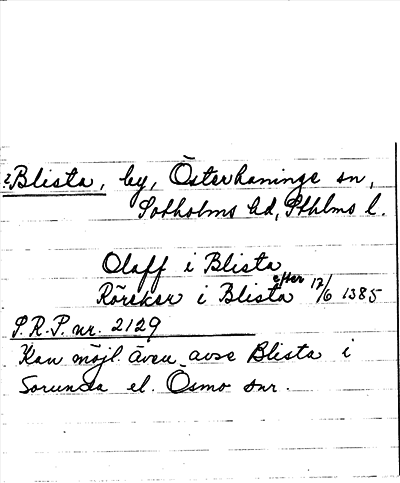 ? Blista, by, Österhaninge sn,
Sotholms hd, Sthlms l.
Olaff i Blista
Rörekar i Blista efter 17/6 1385
S.R.P. nr. 2129
Kan möjl. även avse Blista i
Sorunda el. Ösmo snr.